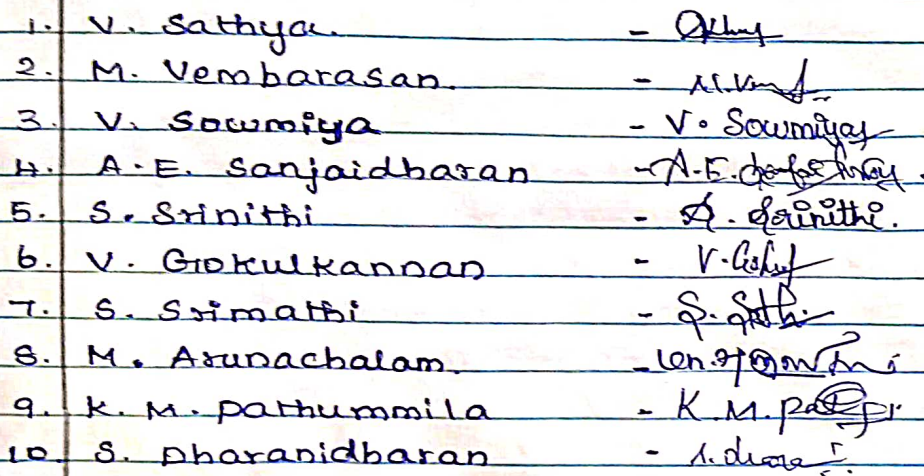 1. V. Sathya. -
2. M. Vembarasan. -
3. V. Sowmiya - V. Sowmiya
4. A.E. Sanjaidharan - A.E.
5. S. Srinithi - S. Srinithi.
6. V. Gokulkannan - V.
7. S. Srimathi - S.
8. M. Arunachalam. -
9. K. M. Pathummila - K.M.
10 S. Dharanidharan -